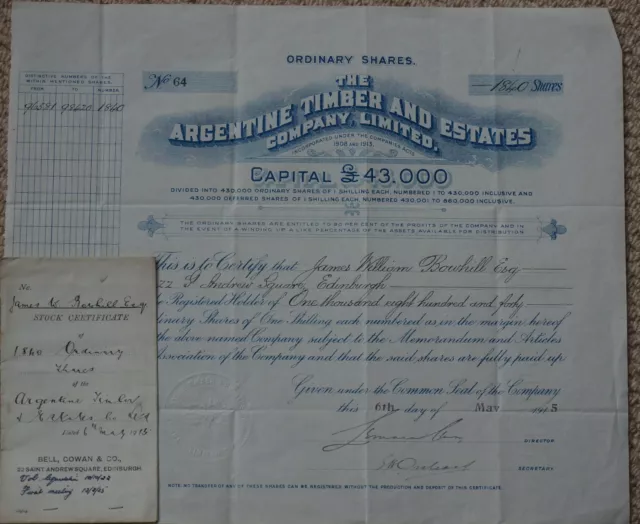 ORDINARY SHARES.
No 64
1840 Shares
THE
ARGENTINE TIMBER AND ESTATES
COMPANY, LIMITED.
INCORPORATED UNDER THE COMPANIES ACTS
1908 AND 1913.
CAPITAL £43,000
DIVIDED INTO 430,000 ORDINARY SHARES OF 1 SHILLING EACH, NUMBERED 1 TO 430,000 INCLUSIVE AND
430,000 DEFERRED SHARES OF 1 SHILLING EACH, NUMBERED 430,001 TO 860,000 INCLUSIVE.
THE ORDINARY SHARES ARE ENTITLED TO 80 PER CENT OF THE PROFITS OF THE COMPANY AND IN
THE EVENT OF A WINDING UP A LIKE PERCENTAGE OF THE ASSETS AVAILABLE FOR DISTRIBUTION
DISTINCTIVE NUMBERS OF THE
WITHIN MENTIONED SHARES.
FROM TO NUMBER
96581 98420 1840
This is to Certify that James William Bowhill Esq
22 St Andrew Square, Edinburgh
Registered Holder of One thousand eight hundred and forty
dinary Shares of One Shilling each numbered as in the margin hereof
the above named Company subject to the Memorandum and Articles
ssociation of the Company and that the said shares are fully paid up
Given under the Common Seal of the Company
this 6th day of May 1915
DIRECTOR
SECRETARY
NOTE: NO TRANSFER OF ANY OF THESE SHARES CAN BE REGISTERED WITHOUT THE PRODUCTION AND DEPOSIT OF THIS CERTIFICATE.
No.
James W. Bowhill Esq
STOCK CERTIFICATE
of
1840 Ordinary
Shares
of the
Argentine Timber
& Estates Co Ltd
Dated 6th May 1915
BELL, COWAN & CO.,
22 SAINT ANDREW SQUARE, EDINBURGH.